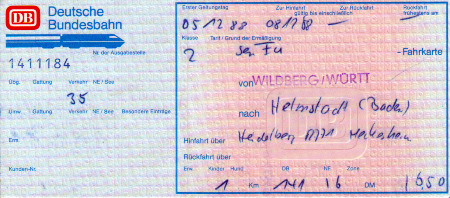 DB Deutsche Bundesbahn
Nr der Ausgabestelle
1411184
Übg. Gattung Verkehr NE / See
35
Unw. Gattung Verkehr NE / See Besondere Einträge
Erm.
Kunden-Nr.
Erster Geltungstag Zur Hinfahrt Zur Rückfahrt Rückfahrt
gültig bis einschließlich frühestens am
05 12 88 08 12 88 — —
Klasse Tarif / Grund der Ermäßigung
2 -Fahrkarte
von WILDBERG/WÜRTT
nach Helmstadt (Baden)
Hinfahrt über Heidelberg
Rückfahrt über
Erw. Kinder Hund DB NE Zone
1 Km 141 16 DM 16,50